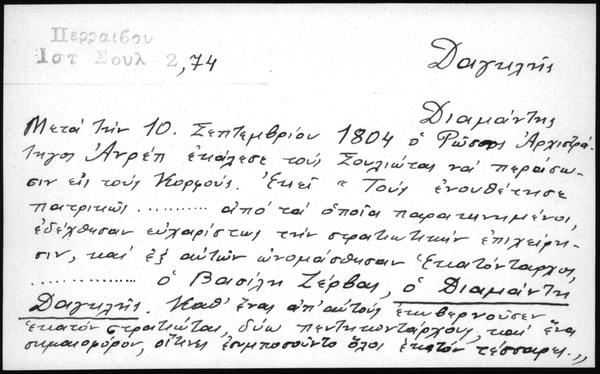 Περραιβου
Ιστ Σουλ 2,74
Δαγκλῆς
Διαμάντης
Μετά τήν 10. Σεπτεμβρίου 1804 ὁ Ρῶσος Ἀρχιστρά-
τηγος Ἀνρέπ ἐκάλεσε τούς Σουλιώτας νά περάσω-
σιν εἰς τούς Κορφούς. Ἐκεῖ " Τούς ἐνουθέτησε
πατρικῶς .......... ἀπό τά ὁποῖα παρακινημένοι,
ἐδέχθησαν εὐχαρίστως τήν στρατιωτικήν ἐπιχείρη-
σιν, καί ἐξ αὐτῶν ὠνομάσθησαν Ἑκατόνταρχοι,
............... ὁ Βασίλη Ζέρβας, ὁ Διαμάντη
Δαγκλῆς. Καθ' ἕνας ἀπ' αὐτούς ἐκυβερνοῦσεν
ἑκατόν στρατιώτας, δύω πεντηκοντάρχους, καί ἕνα
σημαιοφόρον, οἵτινες ἐσυμποσοῦντο ὅλοι ἑκατόν τέσσαρες. "